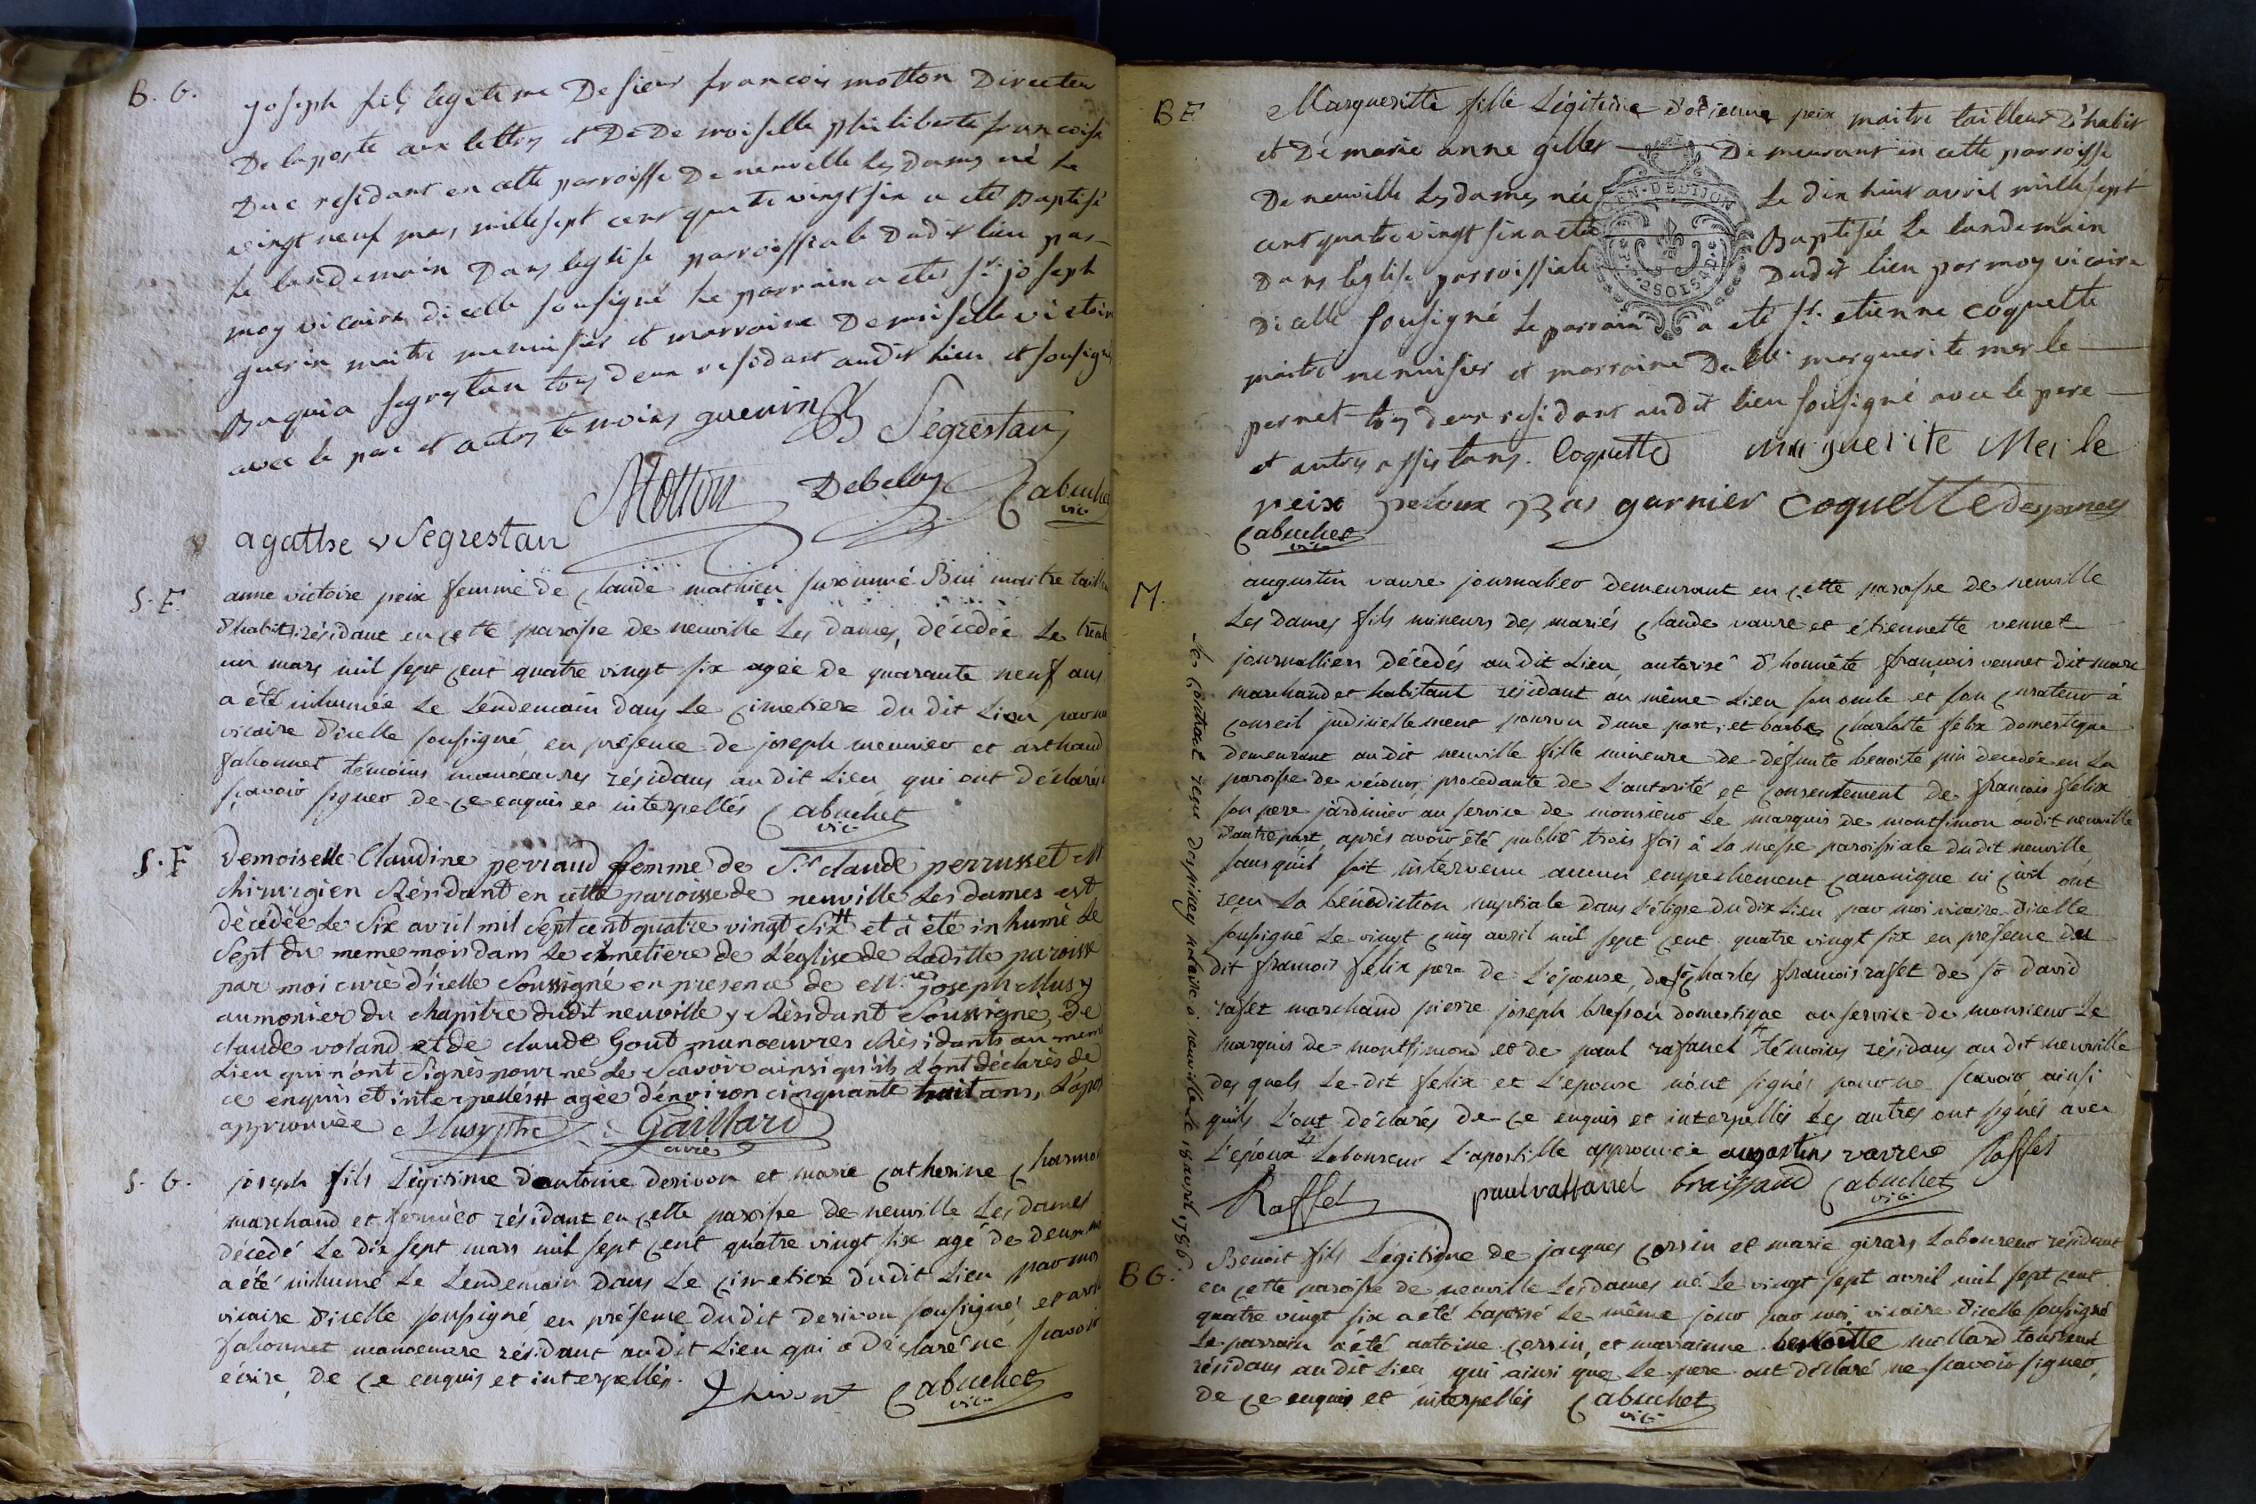 B. G.
joseph fils legitime De sieur francois motton Directeu
De laposte aux lettres et De De moiselle philiberte francoise
Duc residant en cette parroisse De neuville les dames né le
vingt neuf mars mille sept cent quatre vingt six a eté Baptisé
le landemain Dans leglise parroissiale Dudit lieu par
moy vicaire dicelle sousigné le parrain a eté sr. joseph
guerin maitre menuisier et marraine Demoiselle victoir
segrestan tous deux residant audit lieu et sousigné
avec le pere et autres temoins guerin Segrestan
Motton Debeloy Cabuchet
vic
agathe v Segrestan
S. F.
anne victoire peix femme de Claude mathieu surnommé maitre taill
d'habits résidant en cette paroisse de neuville Les dames, décédée Le trente
un mars mil sept cent quatre vingt six agée de quarante neuf ans
a été inhumée Le Lendemain dans Le cimetiere du dit Lieu par
vicaire d'icelle soussigné, en présence de joseph meunier et arthaud
fahonnet témoins manoeuvres résidans au dit Lieu, qui ont déclarés
sçavoir signer de ce enquis et interpellés Cabuchet
vic
S. F
Demoiselle Claudine perraud femme de Sr. claude perrusset
chirurgien Résidant en cette paroisse de neuville Les dames est
décédée Le Six avril mil Sept cent quatre vingt Six et à été inhumé Le
Sept du meme mois dans Le cimetiere de L'église de Laditte paroisse
par moi curé d'icelle Soussigné en presence de Mre. joseph Musy
aumonier du chapitre dudit neuville y Résidant Soussigné, de
claude voland et de claude Gout manoeuvres Résidants au meme
Lieu qui n'ont Signés pour ne Le Scavoir ainsi qu'ils L'ont déclarés de
ce enquis et interpellés agée d'environ cinquante huit ans, L'apos
approuvée Musy ptre Gaillard
curé
S. G.
joseph fils Légitime d'antoine derivon et marie Catherine
marchand et fermier résidant en cette paroisse de neuville Les dames
décedé Le dix sept mars mil sept cent quatre vingt six agé de deux
a été inhumé Le Lendemain dans Le cimetiere du dit Lieu par moi
vicaire d'icelle soussigné, en présence du dit derivon soussigné, et
fahonnet manoeuvre résidant au dit Lieu qui a déclaré ne sçavoir
écrire, de ce enquis et interpellés. Cabuchet
vic
B F
Margueritte fille Légitime d'etienne peix maitre tailleur D'habit
et De marie anne gilles Demeurant en cette parroisse
De neuville Les dames née Le dix huit avril mille sept
cent quatre vingt six a eté Baptisée Le landemain
Dans l'église parroissiale Dudit lieu par moy vicaire
Dicelle sousigné le parrain a eté sr. etienne coquette
maitre menuisier et marraine marguerite merle
pernet tous deux residant audit lieu sousigné avec le pere
et autres assistans. Coquette Marguerite Merle
peix peloux Bas garnier Coquette
Cabuchet
vic
M.
augustin vavre journalier demeurant en cette paroisse de neuville
Les Dames fils mineur des mariés Claude vavre et étiennette vennet
journalliers décédés au dit Lieu, autorisé d'honnête françois vennet dit
marchand et habitant résidant au même Lieu son oncle et son curateur à
conseil judiciellement pourvu d'une part; et barbe Charlotte félix domestique
demeurant au dit neuville fille mineure de défunte benoite decedée en La
paroisse de procedante de L'autorité et consentement de françois félix
son pere jardinier au service de monsieur Le marquis de montsimon audit neuville
d'autre part, aprés avoir été publié trois fois à La messe paroissiale du dit neuville
sans quil soit intervenu aucun empechement canonique ni civil ont
reçu La bénédiction nuptiale dans L'église du dit Lieu par moi vicaire d'icelle
soussigné Le vingt cinq avril mil sept cent quatre vingt six en presence du
dit francois félix pere de L'épouse, de sr Charles francois raffet de sr david
raffet marchand pierre joseph domestique au service de monsieur Le
marquis de montsimond et de paul rafanel témoins résidans au dit neuville
des quels Le dit felix et L'epouse n'ont signés pour ne scavoir ainsi
quils L'ont déclarés de ce enquis et interpellés Les autres ont signés avec
L'époux Laboureur L'apostille approuvée augustin vavre Raffet
Raffet paul raffanel Cabuchet
vic
Le Contract reçu notaire à neuville Le 18 avril 1786
B G.
Benoit fils Légitime de jacques Corsin et marie girard Laboureur résidant
en cette paroisse de neuville Les dames né Le vingt sept avril mil sept cent
quatre vingt six a été baptisé Le même jour par moi vicaire d'icelle soussigné
Le parrain a été antoine corsin, et marrainne benoitte mollard
résidans au dit Lieu qui ainsi que Le pere ont déclaré ne scavoir signer,
de ce enquis et interpellés Cabuchet
vic